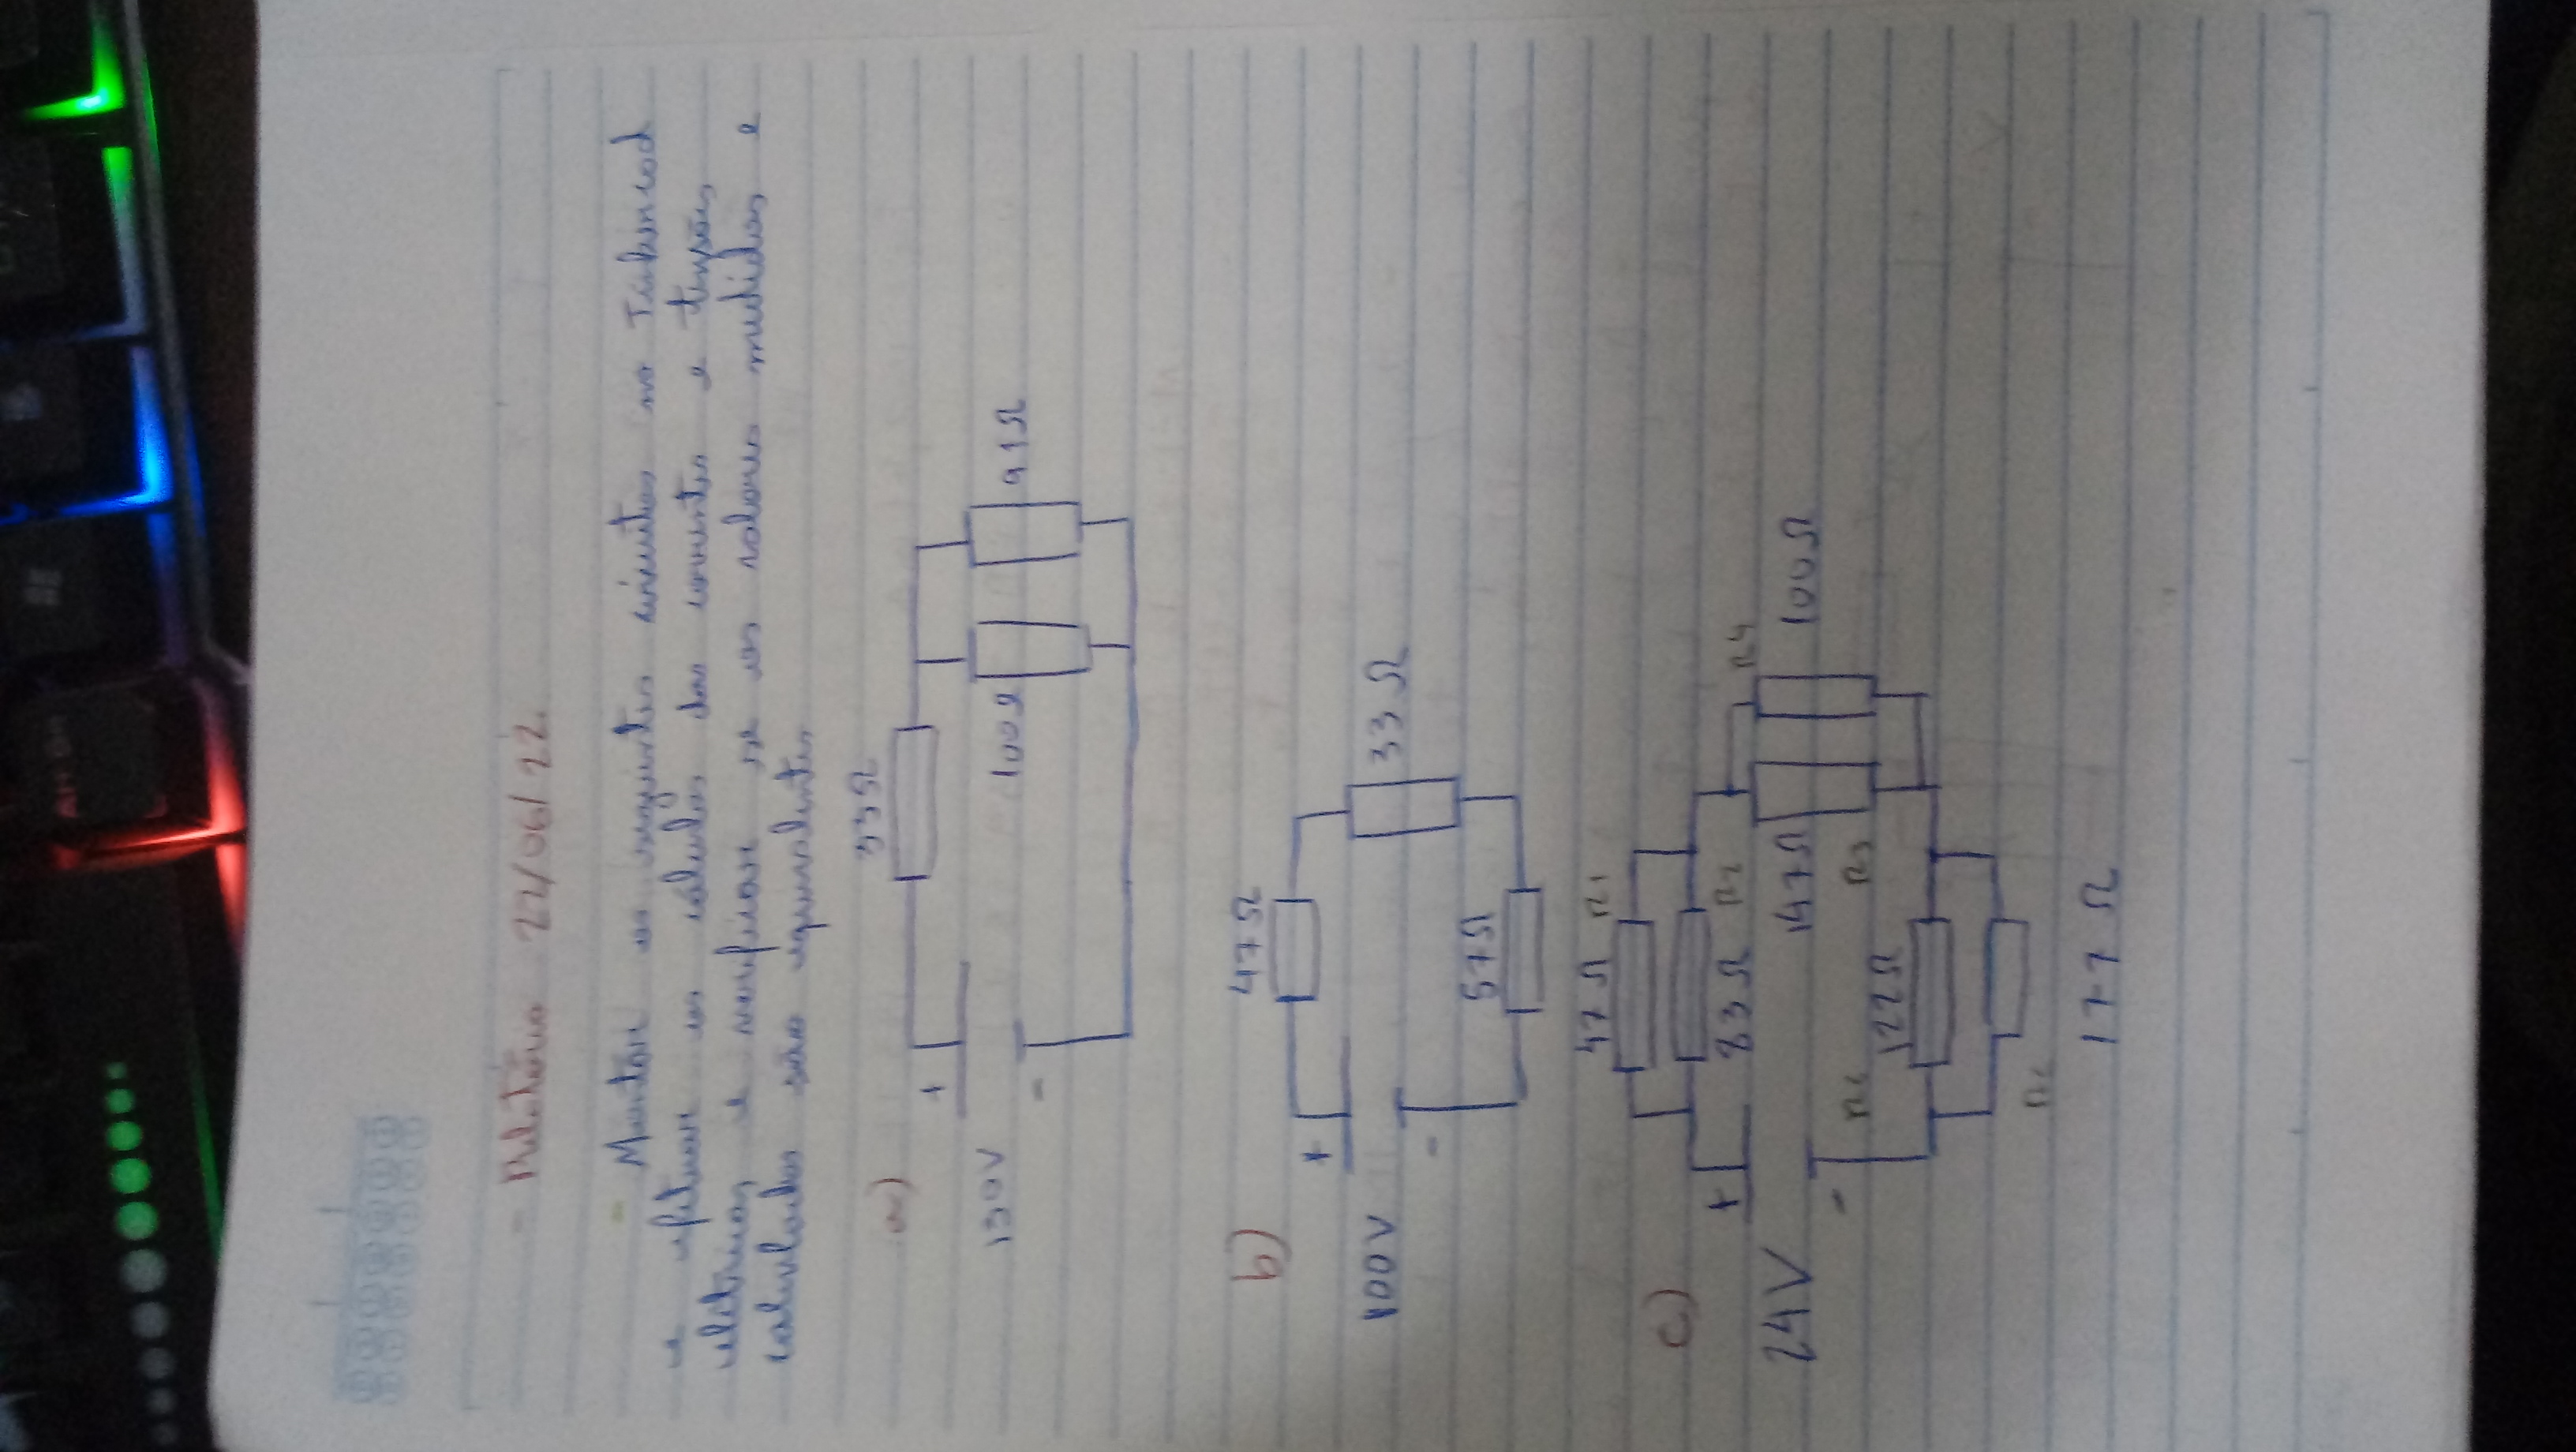 - Relatório 22/06/22.
- Montar os seguintes circuitos no Tinkercad
e efetuar os cálculos das correntes e tensões
elétricas e verificar se os valores medidos e
calculados são equivalentes
33Ω
a)
+
130V
100Ω
91Ω
-
b)
47Ω
+
100V
33Ω
-
57Ω
47Ω R1
c)
+
83Ω R2
R4
24V
147Ω
100Ω
-
R3
122Ω
177Ω